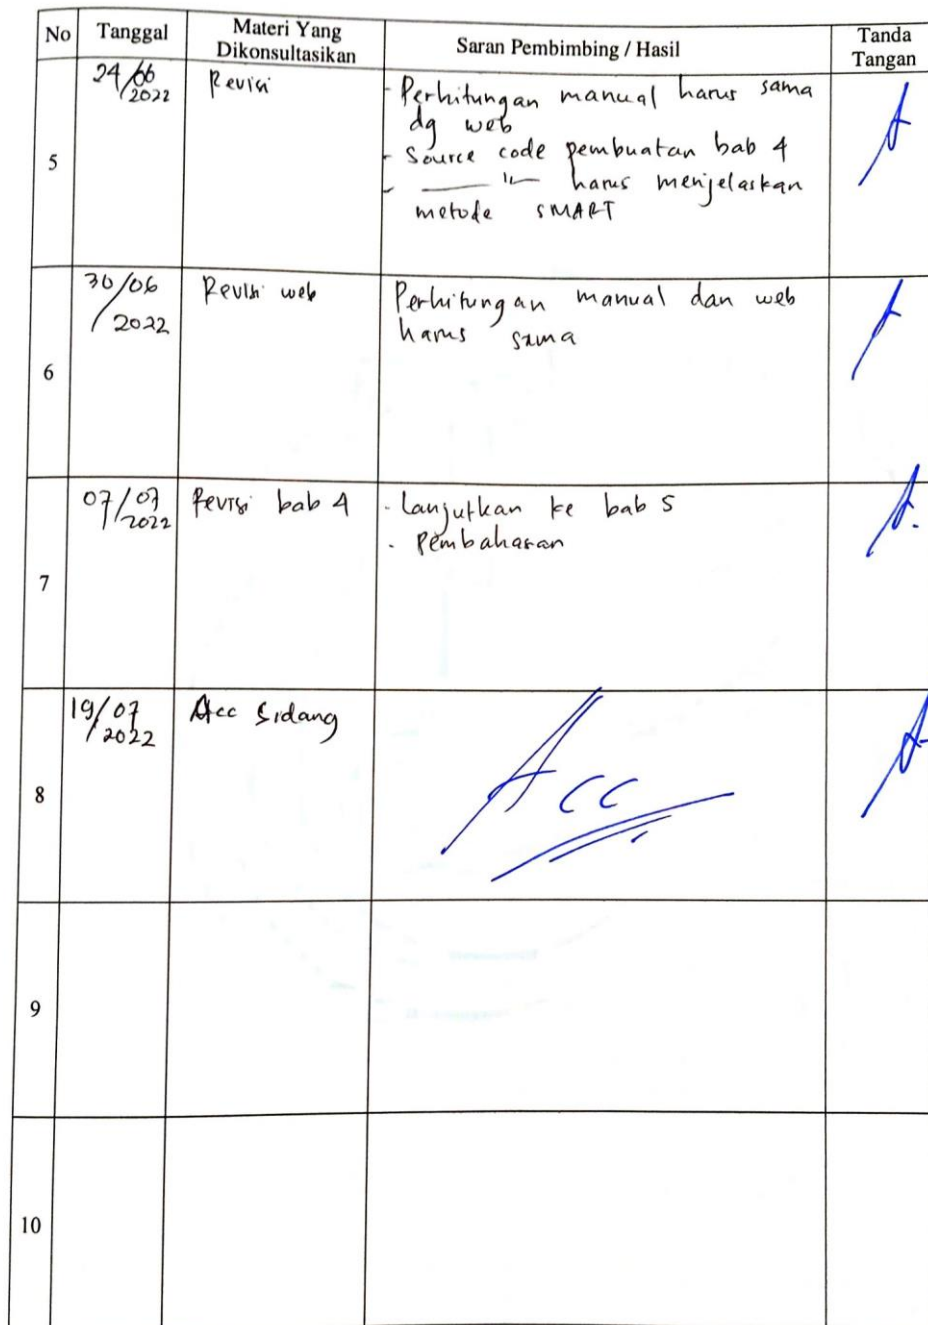 No Tanggal Materi Yang Dikonsultasikan Saran Pembimbing / Hasil Tanda Tangan
5
24/06
2022
Revisi
- Perhitungan manual harus sama
dg web
- Source code pembuatan bab 4
- —— 〃 harus menjelaskan
metode SMART
6
30/06
2022
Revisi web
Perhitungan manual dan web
harus sama
7
07/07
2022
Revisi bab 4
- Lanjutkan ke bab 5
- Pembahasan
8
19/07
2022
Acc Sidang
Acc
9
10